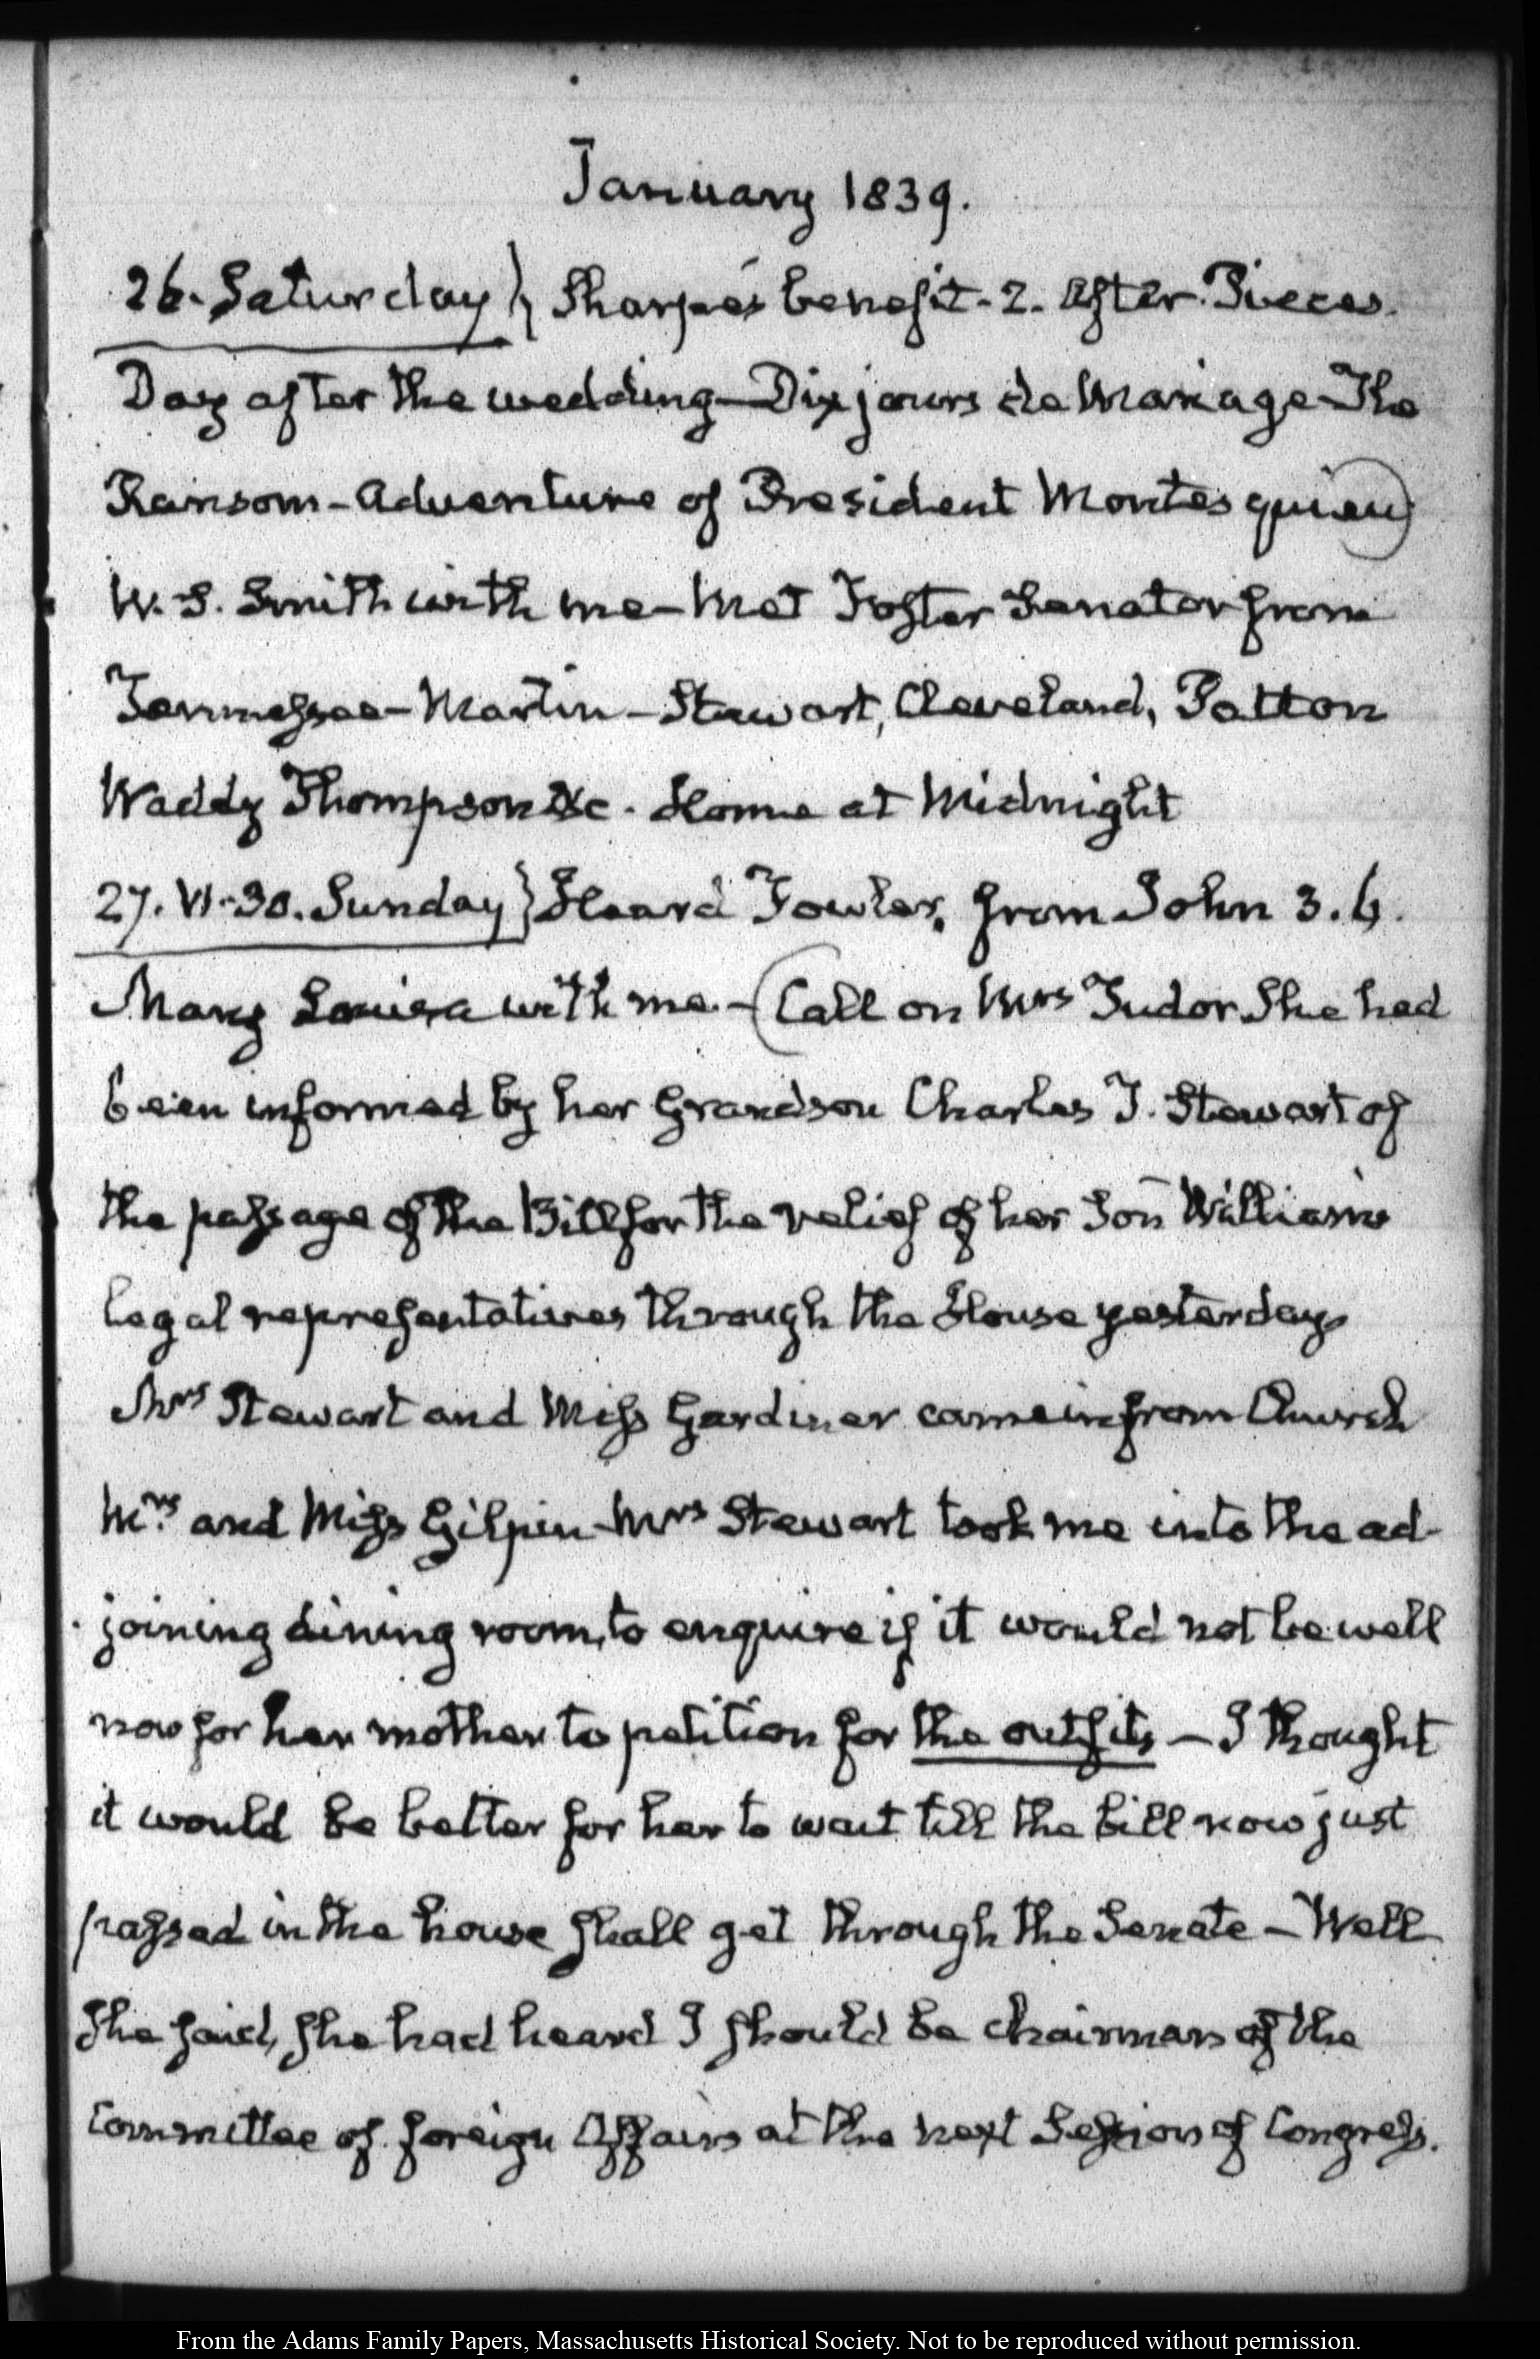 January 1839.
26. Saturday} Sharpe's benefit-2. After Pieces.
Day after the wedding—Dix jours de Mariage—The
Ransom—Adventure of President Montesquieu)
W. S. Smith with me—Met Foster Senator from
Tennessee—Martin—Stewart, Cleveland, Patton
Waddy Thompson &c. Home at Midnight
27. VI.30. Sunday} Heard Fowler, from John 3.6.
Mary Louisa with me.—(Call on Mrs Tudor She had
been informed by her Grandson Charles T. Stewart of
the passage of the Bill for the relief of her Son William's
legal representatives through the House yesterday
Mrs Stewart and Miss Gardiner came in from Church
Mrs and Miss Gilpin—Mrs Stewart took me into the ad-
joining dining room, to enquire if it would not be well
now for her mother to petition for the outfits—I thought
it would be better for her to wait till the bill now just
passed in the house shall get through the Senate—Well
She said, She had heard I should be chairman of the
Committee of foreign Affairs at the next Session of Congress.
From the Adams Family Papers, Massachusetts Historical Society. Not to be reproduced without permission.